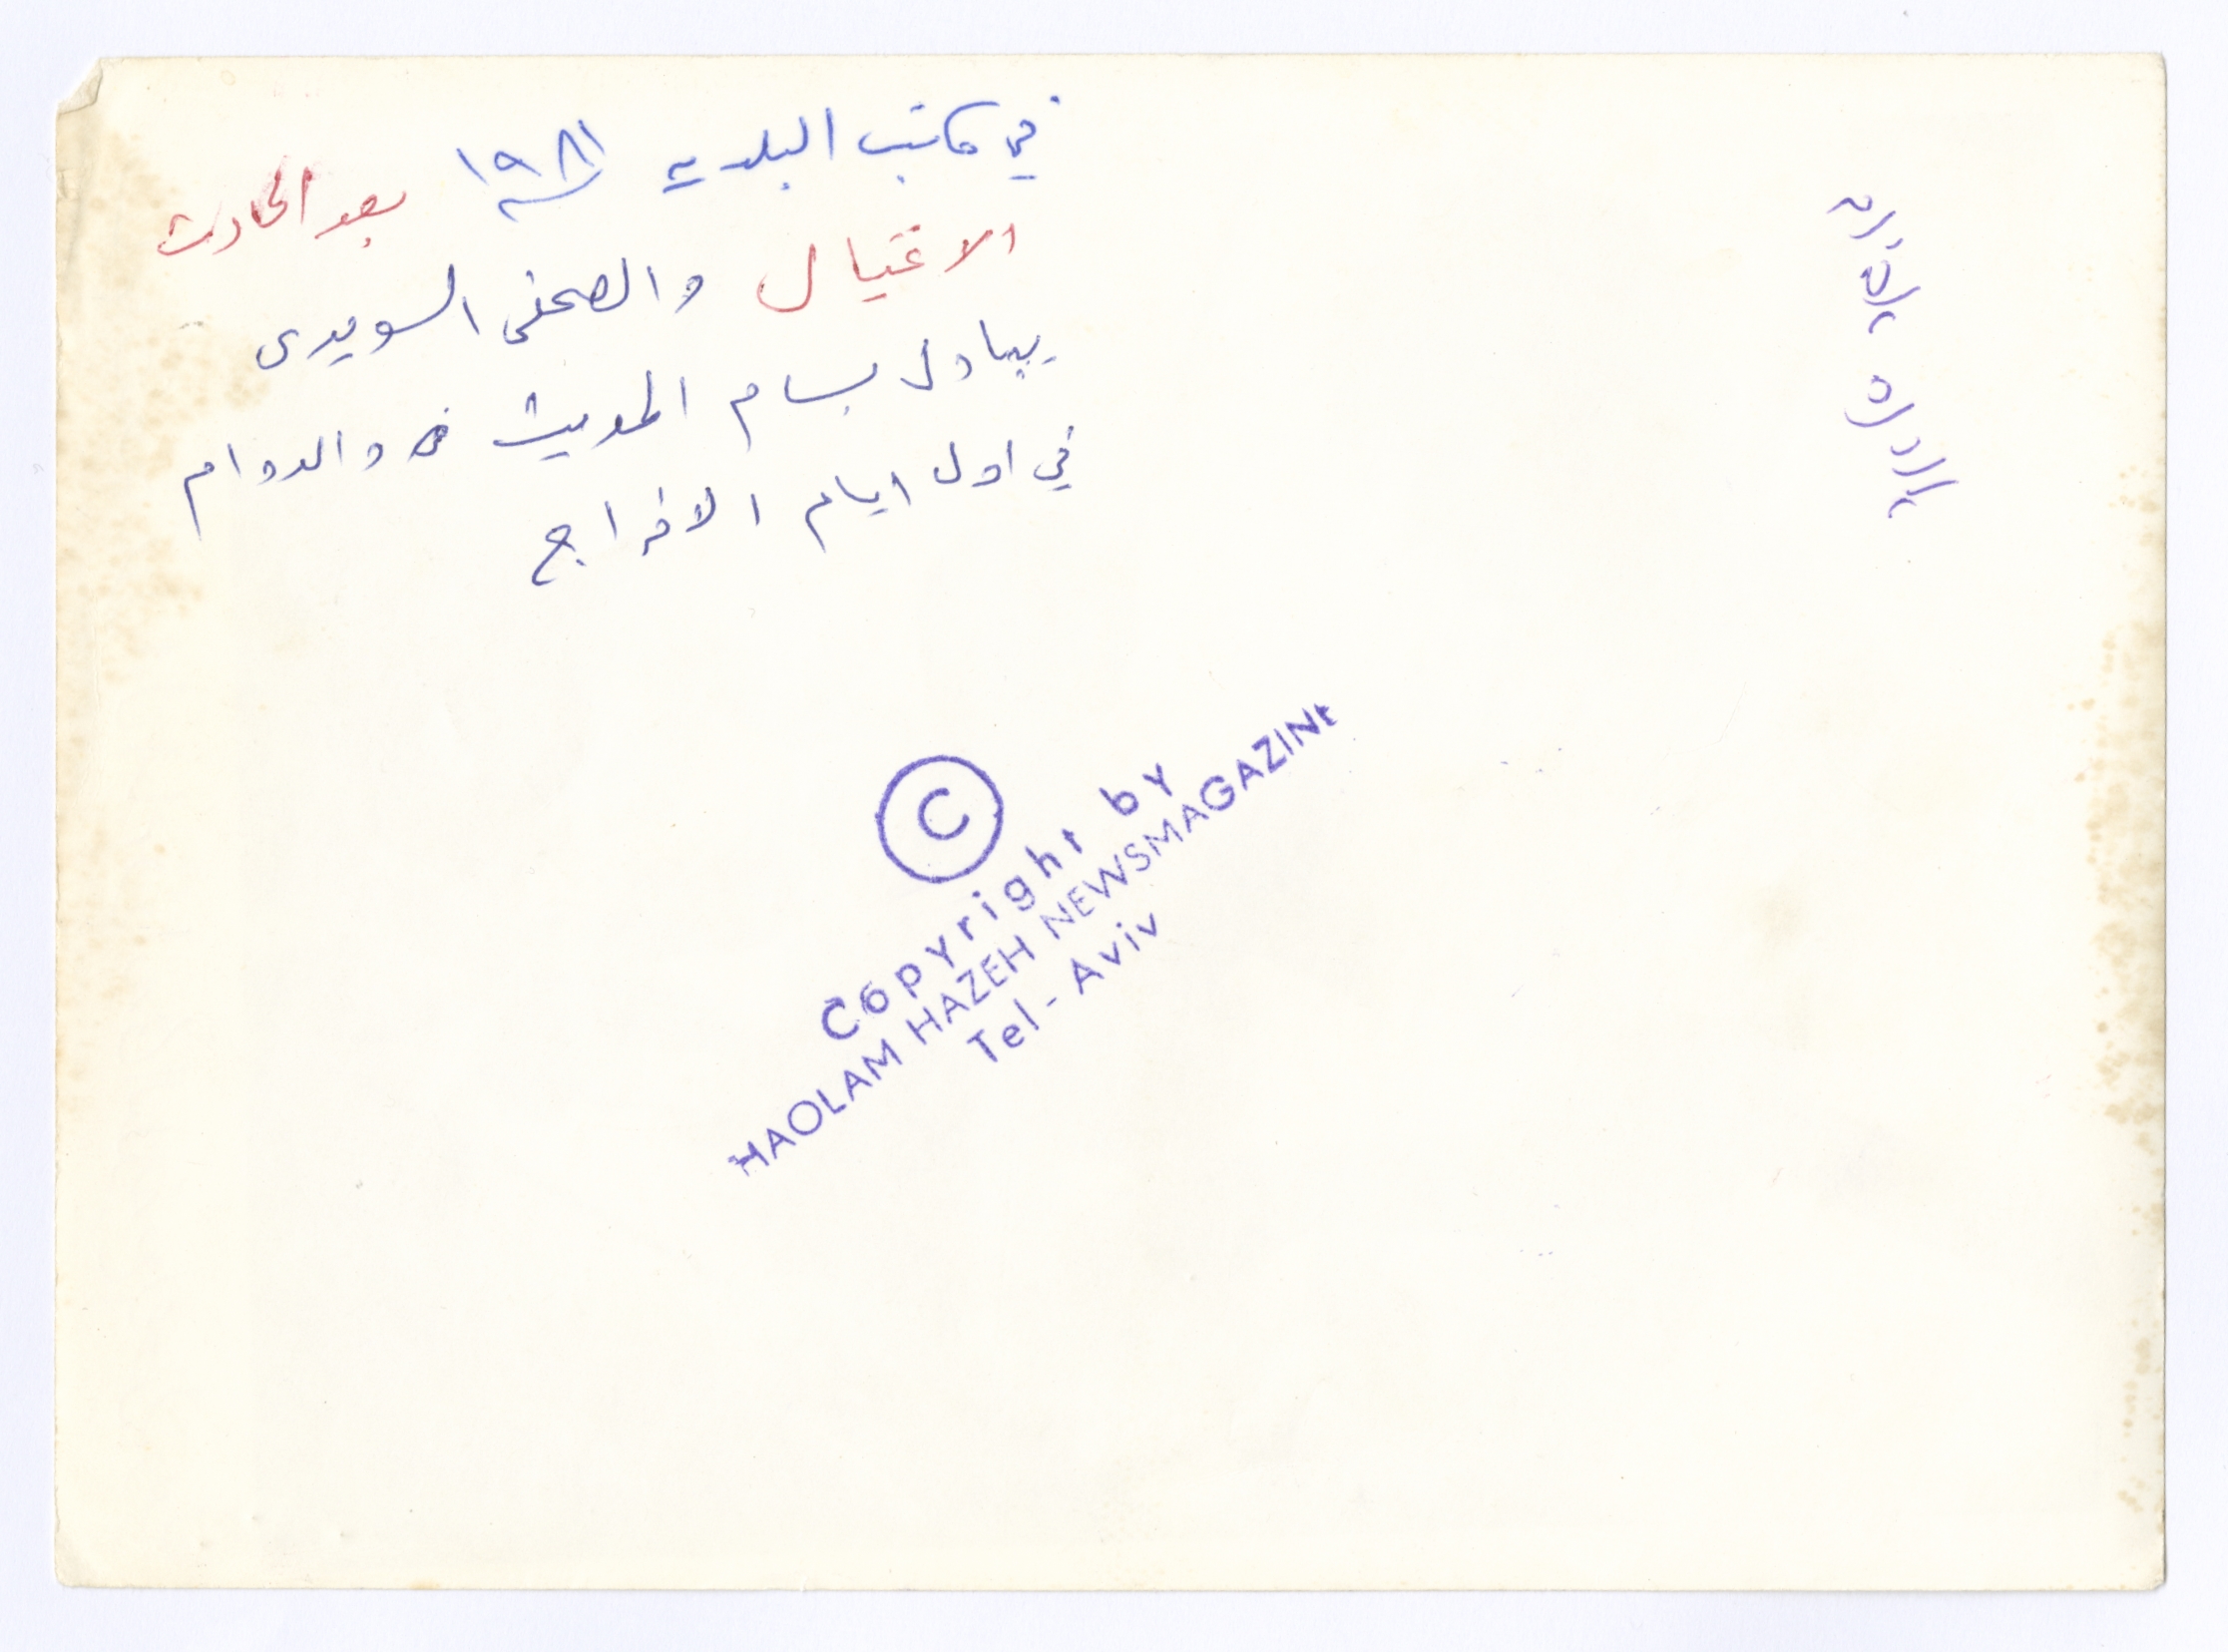 في مكاتب البلديه ١٩٨١ بعد الحادث
الاغتيال والصحفى السويدى
يبادل بسام الحديث فى والدوام
في اول ايام الافراج
©
Copyright by
HAOLAM HAZEH NEWSMAGAZINE
Tel-Aviv